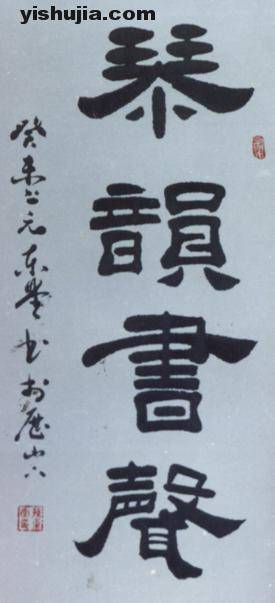 yishujia.com
琴韻書聲
癸未上元东墨书于历山下